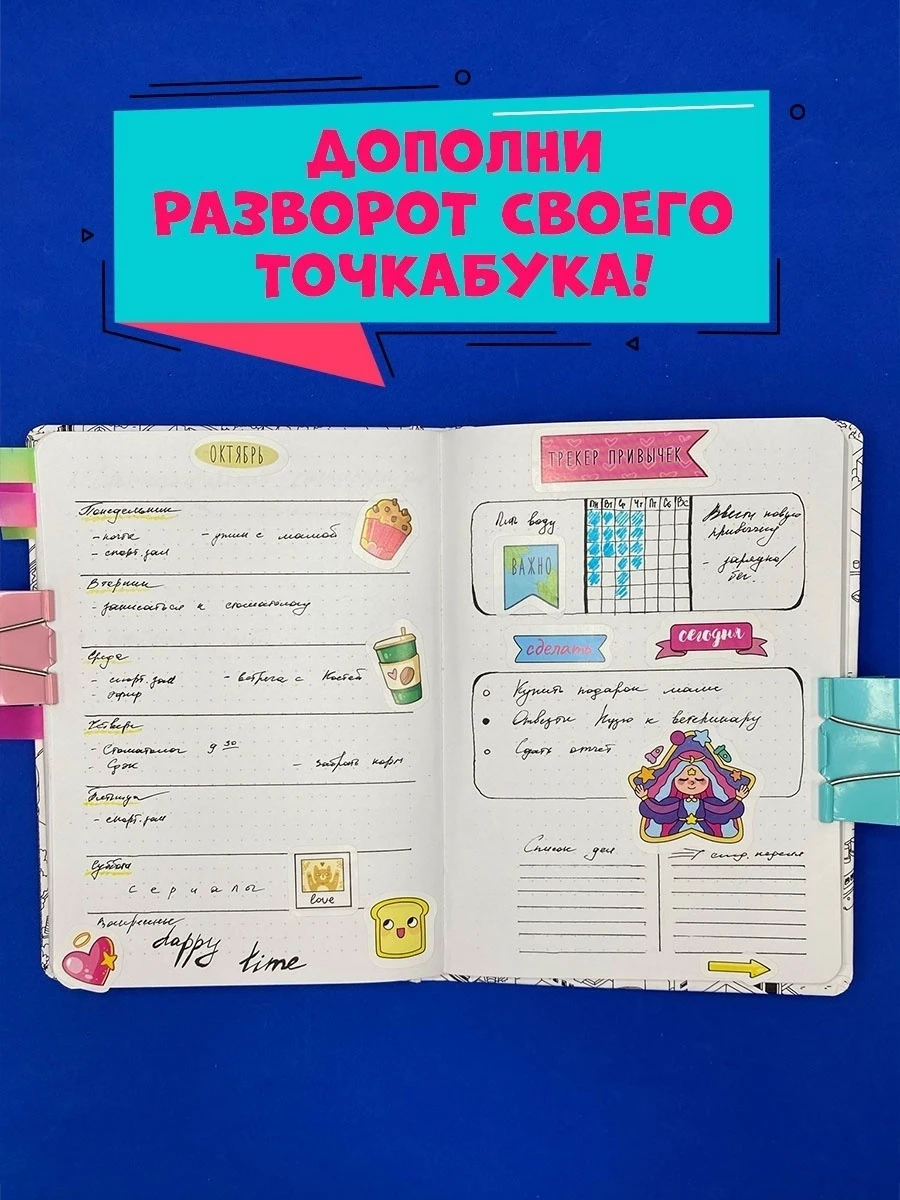 ДОПОЛНИ
РАЗВОРОТ СВОЕГО
ТОЧКАБУКА!
ОКТЯБРЬ
Понедельник
- ужин с мамой
- спорт.зал
Вторник
- записаться к стоматологу
Среда
- спорт.зал - встреча с Костей
Четверг
- Стоматолог 9 30
- забрать корм
Пятница
- спорт.зал
Суббота
сериалы
love
Воскресенье
Happy
time
ТРЕКЕР ПРИВЫЧЕК
Пить воду
Пн Вт Ср Чт Пт Сб Вс
Ввести новую
привычку
- зарядка/
бег
ВАЖНО
сделать
сегодня
Купить подарок маме
Отвезти к ветеринару
Сдать отчет
Список дел
след. неделя